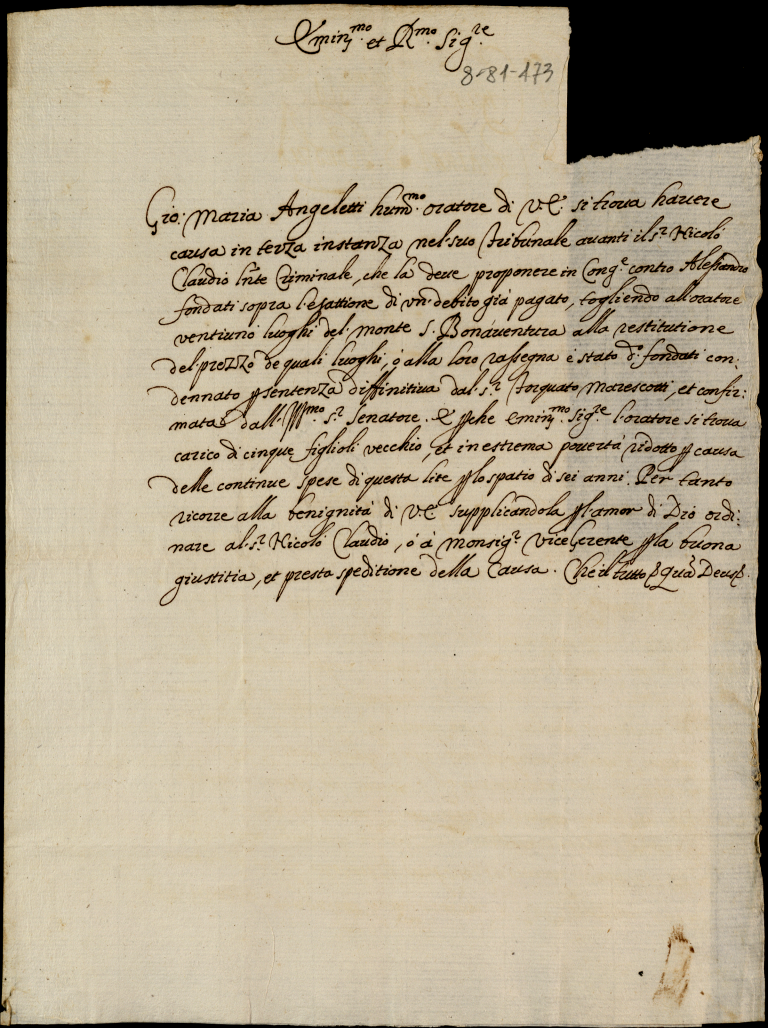 Emin.mo et R.mo Sig.re
8-81-473
Gio: Maria Angeletti hum.mo oratore di V.E. si troua hauere
causa in terza instanza nel suo Tribunale auanti il s.r Nicolò
Claudio lnte Criminale, che la deue proponere in Cong.e contro Alessandro
fondati sopra l'esattione di vn debito già pagato, togliendo all'oratore
ventiuno luoghi del monte S. Bonauentura alla restitutione
del prezzo de quali luoghi, ò alla loro rassegna è stato d.o fondati con:
dennato p sentenza diffinitiua dal s.r Torquato Marescotti, et confir:
mata dall'Ill.mo s.r Senatore. E pche Emin.mo Sig.re l'oratore si troua
carico di cinque figlioli vecchio, et in estrema pouertà ridotto p causa
delle continue spese di questa lite p lo spatio di sei anni. Per tanto
ricorre alla benignità di V.E. supplicandola p l'amor di Dio ordi:
nare al s.r Nicolò Claudio, ò à Monsig.r Vicegerente p la buona
giustitia, et presta speditione della Causa. Che il tutto &. Quã Deus &.